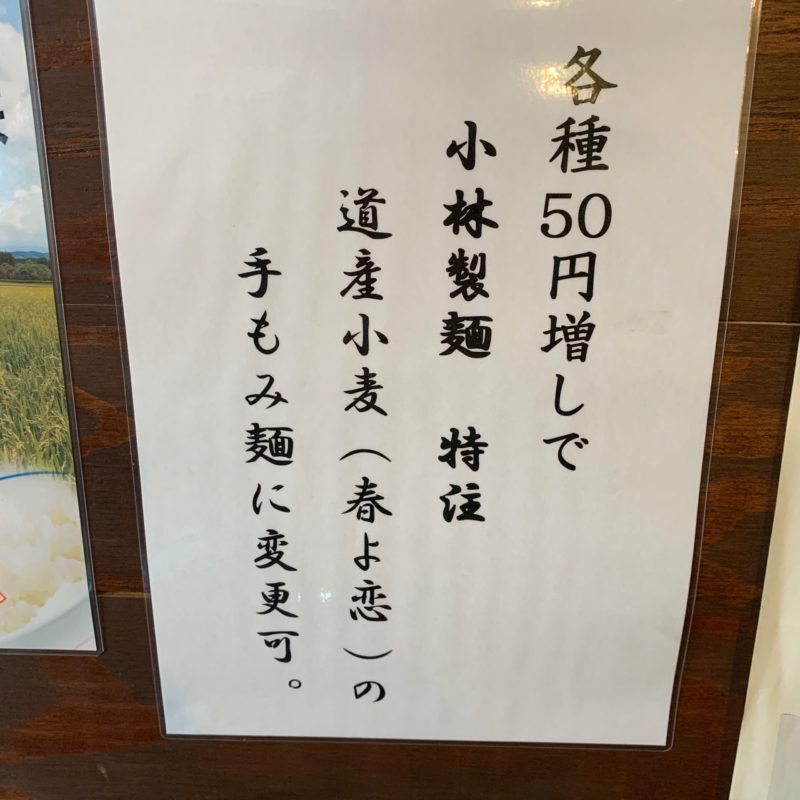 各種50円増しで
小林製麺　特注
道産小麦（春よ恋）の
手もみ麺に変更可。